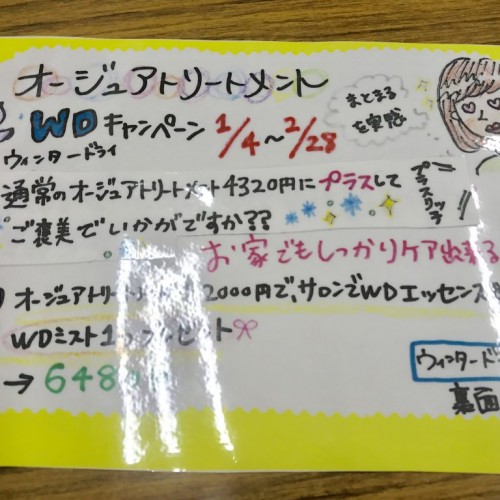 オージュアトリートメント
WDキャンペーン 1/4～2/28
ウィンタードライ
まとまる
を実感
通常のオージュアトリートメント4320円にプラスして
ご褒美でいかがですか??
プラスリッチ
お家でもしっかりケア出来る
オージュアトリート 2000円で、サロンでWDエッセンス
WDミスト1
→ 648
ウィンタード
裏面